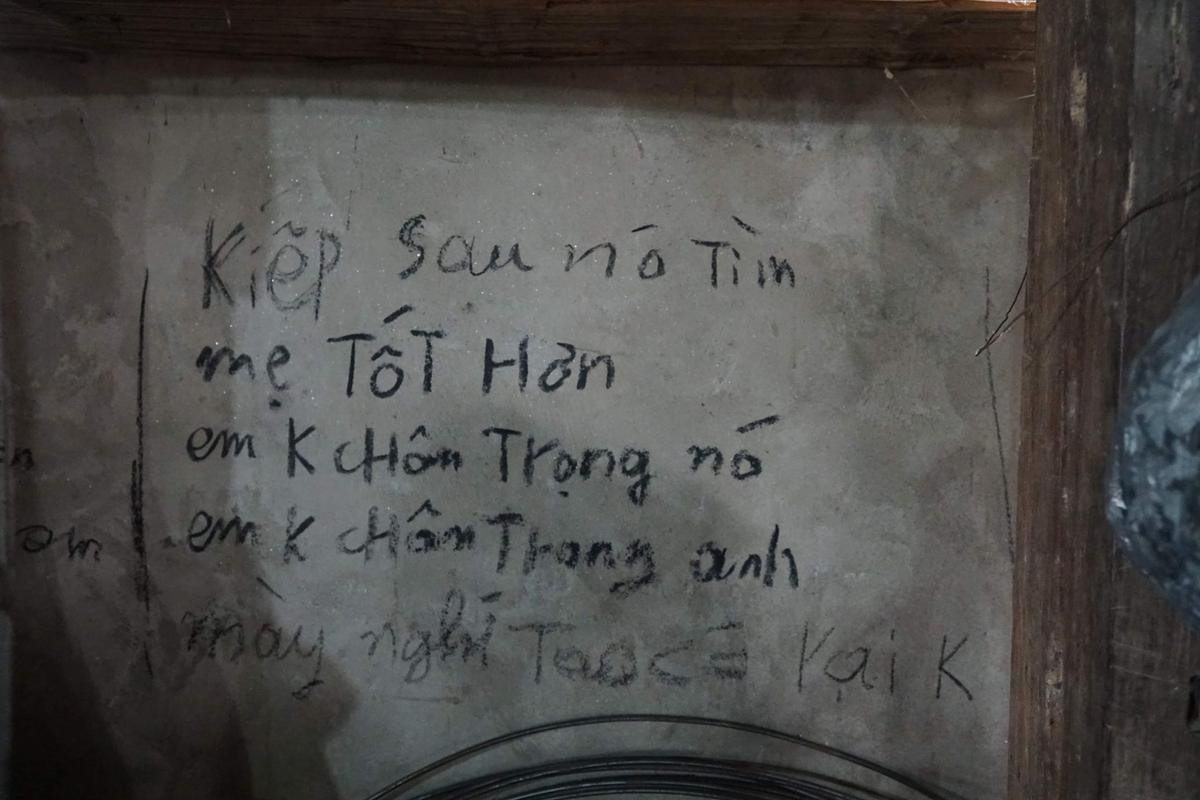 Kiẽp Sau nó Tìm
mẹ TốT Hơn
em K cHôn Trọng nó
em K cHôn Trọng anh
mày nghí Tao có Vại K
am